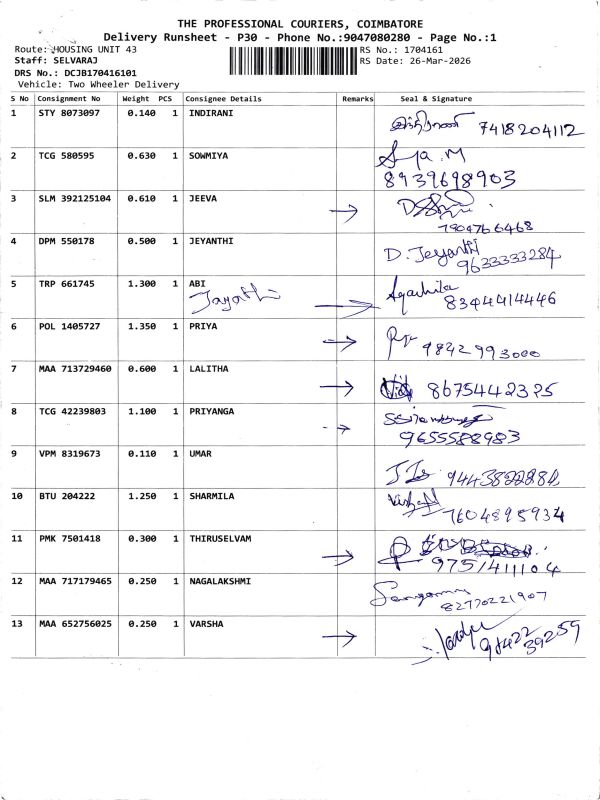 THE PROFESSIONAL COURIERS, COIMBATORE
Delivery Runsheet - P30 - Phone No.:9047080280 - Page No.:1
Route: HOUSING UNIT 43 RS No.: 1704161
Staff: SELVARAJ RS Date: 26-Mar-2026
DRS No.: DCJB170416101
Vehicle: Two Wheeler Delivery
S No Consignment No Weight PCS Consignee Details Remarks Seal & Signature
1 STY 8073097 0.140 1 INDIRANI
7418204112
2 TCG 580595 0.630 1 SOWMIYA
8939698903
3 SLM 392125104 0.610 1 JEEVA
→
7904766468
4 DPM 550178 0.500 1 JEYANTHI
D. Jeyanthi
9633333284
5 TRP 661745 1.300 1 ABI
→ 8344414446
6 POL 1405727 1.350 1 PRIYA
→ 9842993000
7 MAA 713729460 0.600 1 LALITHA
→ 8675442325
8 TCG 42239803 1.100 1 PRIYANGA
→
9655588983
9 VPM 8319673 0.110 1 UMAR
9443822884
10 BTU 204222 1.250 1 SHARMILA
7604895934
11 PMK 7501418 0.300 1 THIRUSELVAM
→
9751411104
12 MAA 717179465 0.250 1 NAGALAKSHMI
82770221907
13 MAA 652756025 0.250 1 VARSHA
→ 9842239259